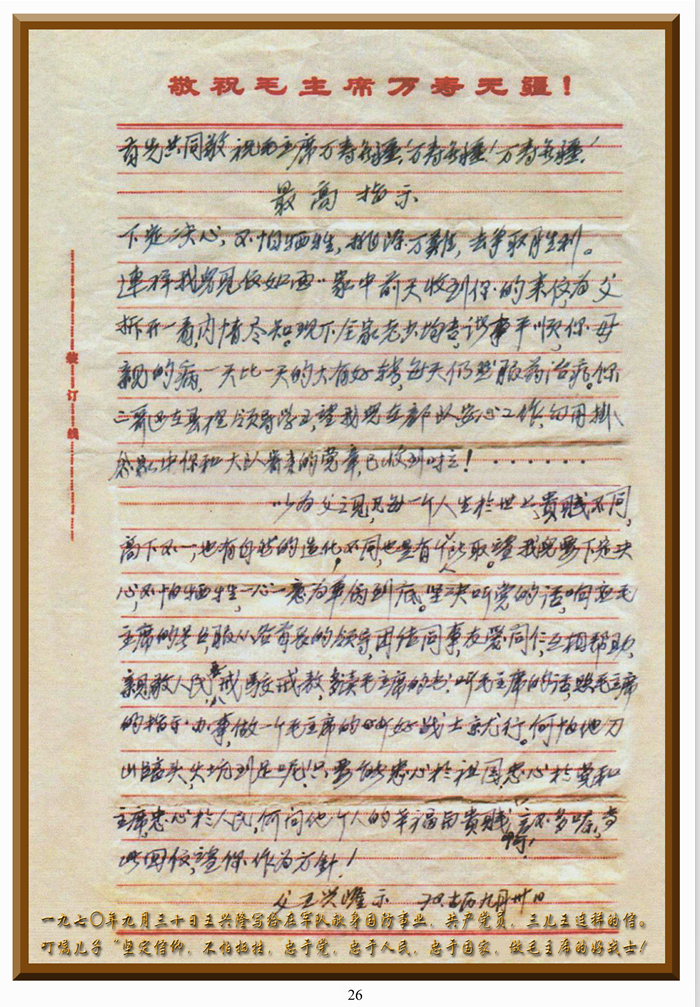 敬祝毛主席万寿无疆！
首先共同敬祝毛主席万寿无疆！万寿无疆！万寿无疆！
最高指示
下定决心，不怕牺牲，排除万难，去争取胜利。
连祥我男见仪如面"家中前天收到你的来仪为父
拆开一看内情尽知。现下全家老少均吉诸事平顺你母
亲的病，一天比一天的大有好转每天仍然服药治疗。你
二哥 望我男在部队安心工作，勿用掛
念 中你和大队 的党章，已收到时玄！······
以为父之见，凡每一个人生於世上，贵贱不同，
高下不一，也有自然的造化，不同也是有 取。望我男要下定决
心，不怕牺牲，一心一意为革命到底。坚决听党的话，响应毛
主席的号召，服从首长的领导，团结同事友爱同仁，互相帮助，
亲敬人民 戒骄戒 多读毛主席的书，听毛主席的话，照毛主席
的指示办事，做一个毛主席的好好战士就行。何怕他刀
山 头，火坑到足呢，只要能忠心於祖国，忠心於党和
主席，忠心於人民，何问他个人的幸福与贵贱， 言不多嘱，当
此回仪，望你作为方针！
父王兴隆示 九月卅日
装订线
一九七〇年九月三十日王兴隆写给在军队献身国防事业、共产党员、三儿王连祥的信。
叮嘱儿子“坚定信仰、不怕牺牲、忠于党、忠于人民、忠于国家、做毛主席的好战士！
26